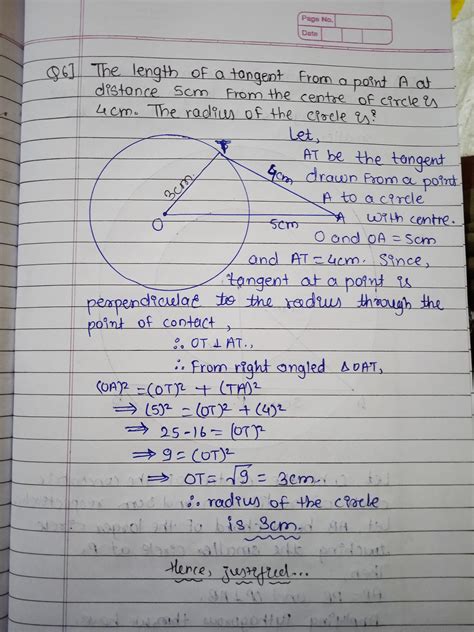 Page No.
Date
Q6] The length of a tangent From a point A at
distance 5cm From the centre of circle is
4cm. The radius of the circle is?
Let,
AT be the tangent
drawn From a point
A to a circle
with centre.
O and OA = 5cm
and AT = 4cm. Since,
tangent at a point is
perpendicular to the radius through the
point of contact,
∴ OT ⊥ AT.,
∴ From right angled △OAT,
(OA)² = (OT)² + (TA)²
⇒ (5)² = (OT)² + (4)²
⇒ 25-16 = (OT)²
⇒ 9 = (OT)²
⇒ OT = √9 = 3cm.
∴ radius of the circle
is 3cm.
Hence, justified...
T
3cm.
4cm
O
5cm
A